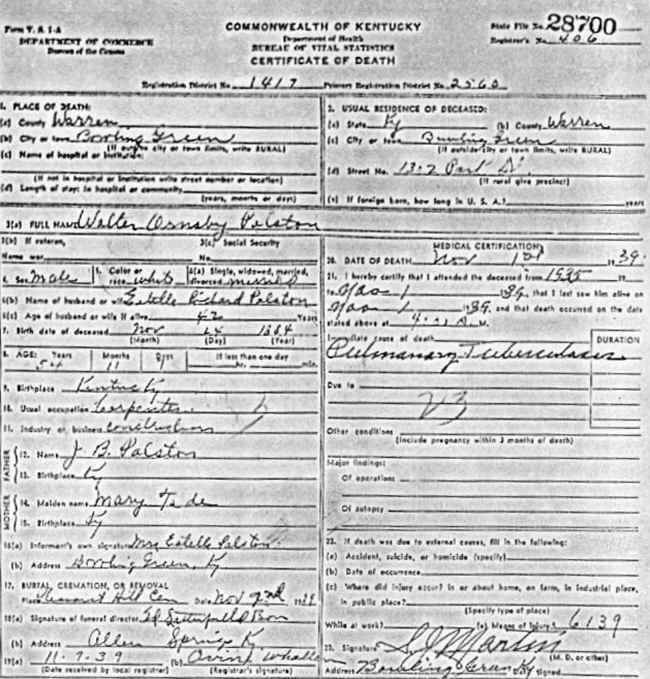 Form V. S. 1-A
DEPARTMENT OF COMMERCE
Bureau of the Census
COMMONWEALTH OF KENTUCKY
Department of Health
BUREAU OF VITAL STATISTICS
CERTIFICATE OF DEATH
State File No. 28700
Registrar's No. 406
Registration District No. 1417 Primary Registration District No. 2560
1. PLACE OF DEATH:
(a) County Warren
(b) City or town Bowling Green
(If outside city or town limits, write RURAL)
(c) Name of hospital or institution:
(If not in hospital or institution write street number or location)
(d) Length of stay: in hospital or community
(years, months or days)
2. USUAL RESIDENCE OF DECEASED:
(a) State Ky (b) County Warren
(c) City or town Bowling Green
(If outside city or town limits, write RURAL)
(d) Street No. Park St.
(If rural give precinct)
(e) If foreign born, how long in U. S. A.? years
3(a) FULL NAME Walter Ormsby Polston
3(b) If veteran,
Name war
3(c) Social Security
No.
4. Sex Male 5. Color or race white 6(a) Single, widowed, married, divorced married
6(b) Name of husband or wife Estelle Richard Polston
6(c) Age of husband or wife if alive 42 Years
7. Birth date of deceased Nov 24 1884
(Month) (Day) (Year)
8. AGE: Years 54 Months 11 Days If less than one day hr. min.
9. Birthplace Kentucky
10. Usual occupation Carpenter
11. Industry or business construction
FATHER
12. Name J. B. Polston
13. Birthplace Ky
MOTHER
14. Maiden name Mary
15. Birthplace Ky
16(a) Informant's own signature Mrs Estelle Polston
(b) Address Bowling Green, Ky
17. BURIAL, CREMATION, OR REMOVAL
Place Pleasant Hill Cem Date Nov 2nd 1939
18(a) Signature of funeral director
(b) Address Allen Springs Ky
19(a) 11-7-39 (b)
(Date received by local registrar) (Registrar's signature)
MEDICAL CERTIFICATION
20. DATE OF DEATH Nov 1st 1939
21. I hereby certify that I attended the deceased from 1935 19
to Nov 1 1939, that I last saw him alive on
Nov 1 1939, and that death occurred on the date
stated above at M.
Immediate cause of death
DURATION
Pulmonary Tuberculosis
Due to
23
Other conditions
(Include pregnancy within 3 months of death)
Major findings:
Of operations
Of autopsy
22. If death was due to external causes, fill in the following:
(a) Accident, suicide, or homicide (specify)
(b) Date of occurrence
(c) Where did injury occur? in or about home, on farm, in industrial place,
in public place?
(Specify type of place)
While at work? (e) Means of injury 6139
23. Signature S J Martin
(M. D. or other)
Address Bowling Green K Date signed